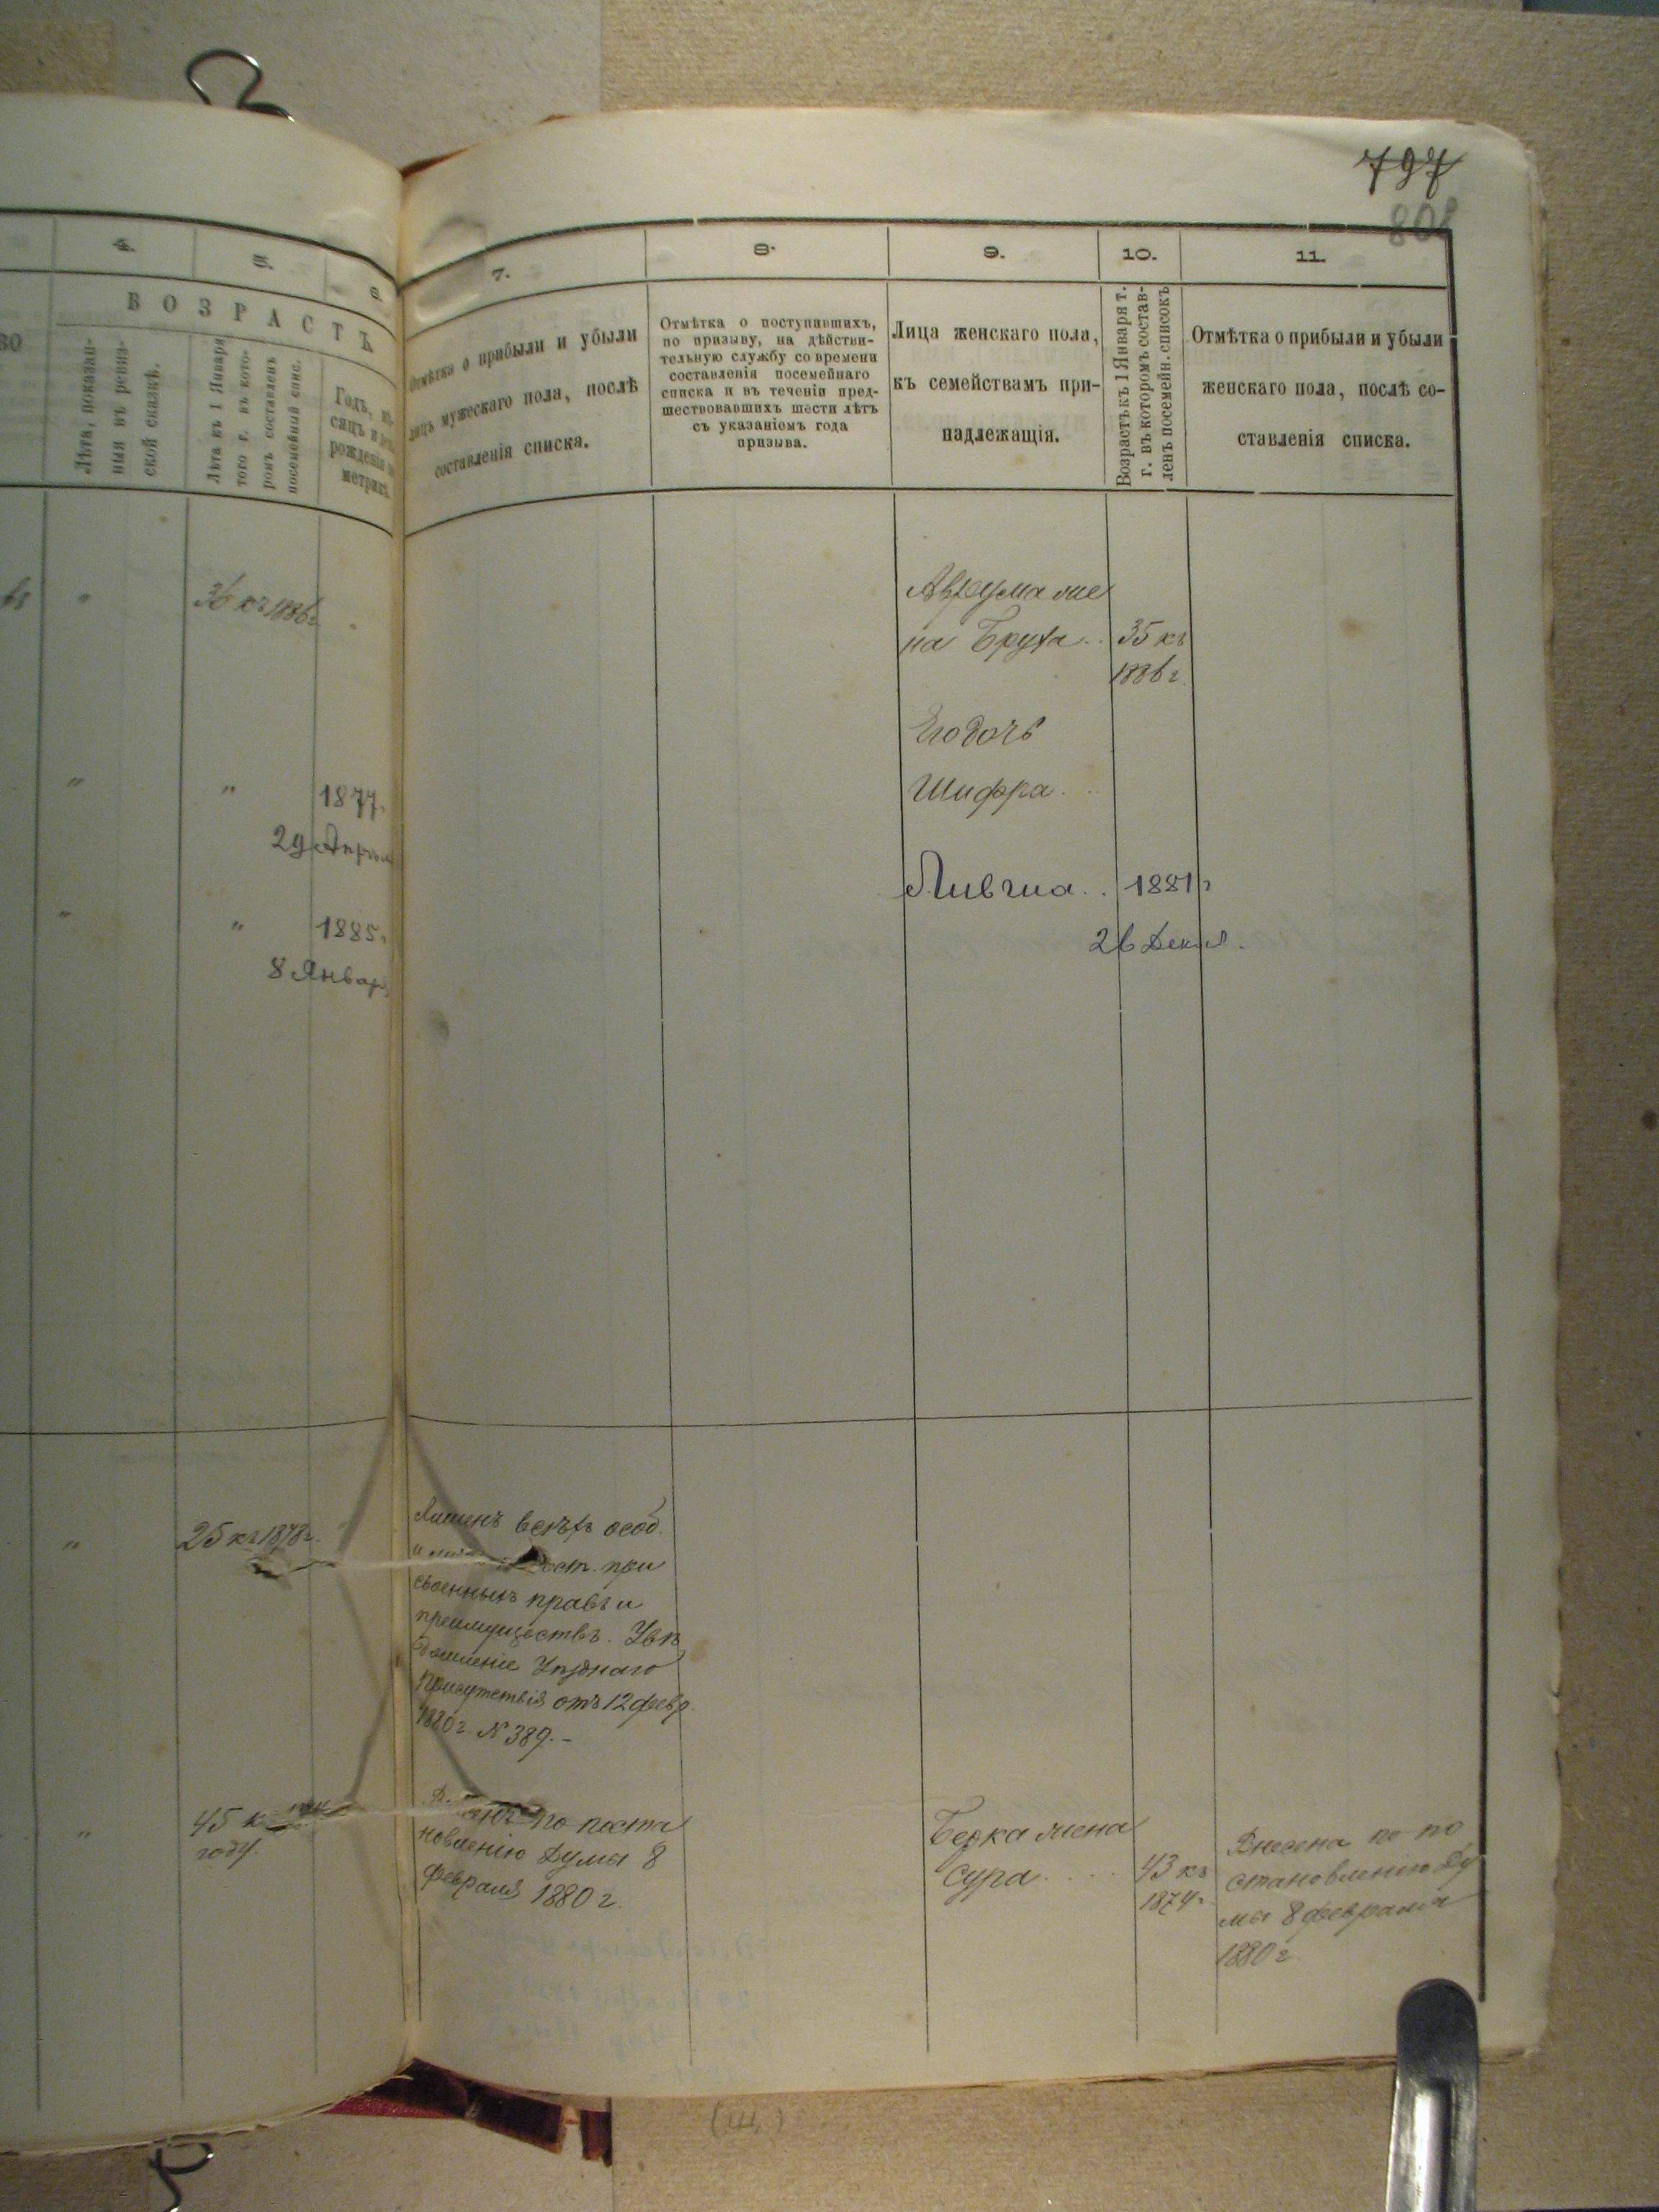 797
801
4.
5.
6.
7.
8.
9.
10.
11.
ВОЗРАСТЪ.
во
Лѣта, показан-
ныя въ ревиз-
ской сказкѣ.
Лѣта къ 1 Января
того г. въ кото-
ромъ составленъ
посемейный спис.
Годъ, мѣ-
сяцъ и день
рожденія по
метрикѣ.
Отмѣтка о прибыли и убыли
лицъ мужескаго пола, послѣ
составленія списка.
Отмѣтка о поступившихъ,
по призыву, на дѣйстви-
тельную службу со времени
составленія посемейнаго
списка и въ теченіи пред-
шествовавшихъ шести лѣтъ
съ указаніемъ года
призыва.
Лица женскаго пола,
къ семействамъ при-
надлежащія.
Возрастъ къ 1 Января т.
г. въ которомъ состав-
ленъ посемейн. списокъ
Отмѣтка о прибыли и убыли
женскаго пола, послѣ со-
ставленія списка.
" 36 къ 1886 г.
Аврума же
на Бруха .. 35 къ
1886 г.
Его дочь
" " 1877.
Шифра ..
29 Апрѣля
Ливша .. 1881 г
" " 1885.
26 Декаб.
8 Январ
" 25 къ 1878 г.
Лишенъ всѣхъ особ.
и сост. при
своенныхъ правъ и
преимуществъ. Увѣ
домленіе Уѣзднаго
Присутствія отъ 12 февр.
1880 г. № 389. –
" 45 к
году.
по поста
новленію Думы 8
Февраля 1880 г.
Берка жена
Сура .... 43 къ
1874 г.
Внесена по по
становленію Ду
мы 8 февраля
1880 г.
(Щ)